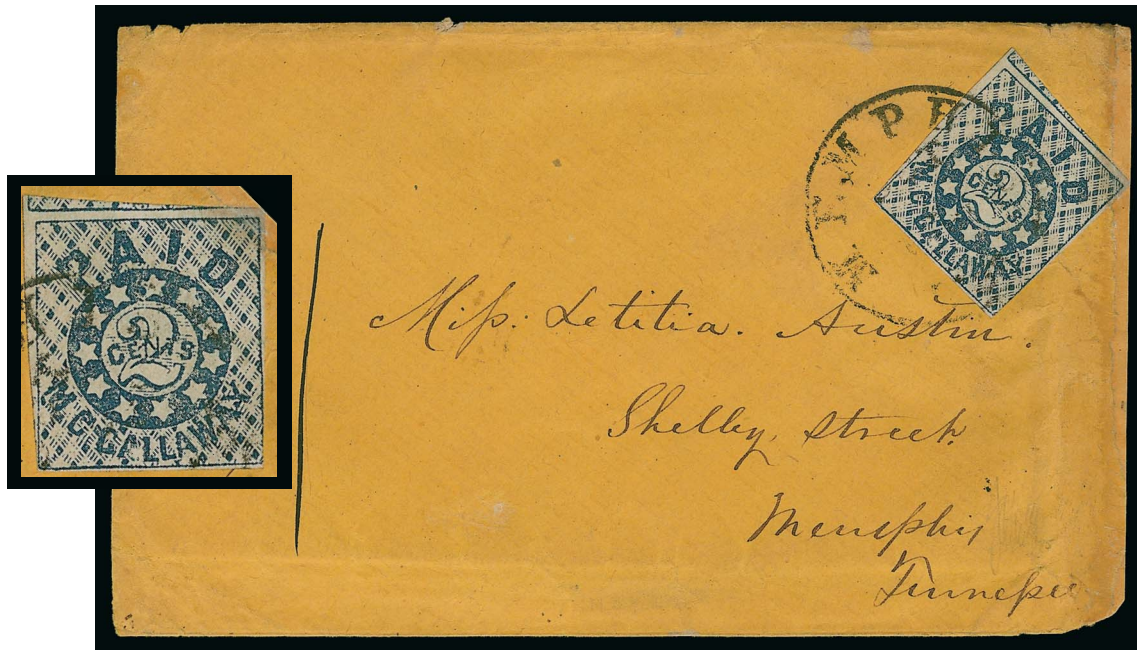 MEMPH
PAID
2
CENTS
M.C. CALLAWAY
PAID
2
CENTS
M.C. CALLAWAY
Miſs. Letitia. Austin.
Shelby, Street.
Memphis
Tenneſsee